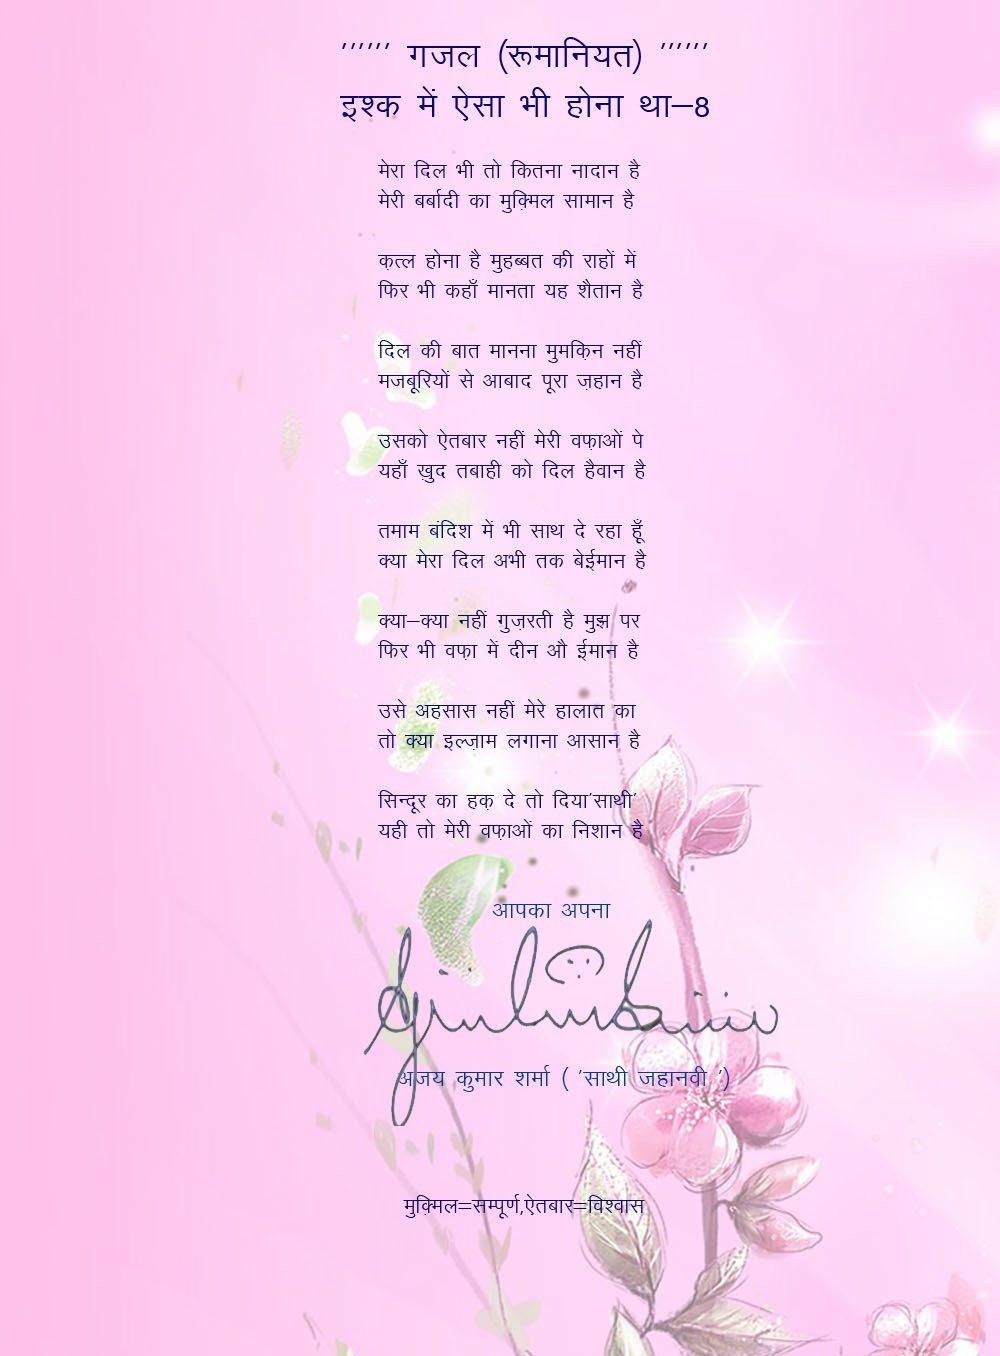 '''''' गजल (रूमानियत) ''''''
इश्क में ऐसा भी होना था–8
मेरा दिल भी तो कितना नादान है
मेरी बर्बादी का मुक़्मिल सामान है
क़त्ल होना है मुहब्बत की राहों में
फिर भी कहाँ मानता यह शैतान है
दिल की बात मानना मुमकि़न नहीं
मजबूरियों से आबाद पूरा ज़हान है
उसको ऐतबार नहीं मेरी वफ़ाओं पे
यहाँ ख़ुद तबाही को दिल हैवान है
तमाम बंदिश में भी साथ दे रहा हूँ
क्या मेरा दिल अभी तक बेईमान है
क्या–क्या नहीं गुज़रती है मुझ पर
फिर भी वफ़ा में दीन औ ईमान है
उसे अहसास नहीं मेरे हालात का
तो क्या इल्ज़ाम लगाना आसान है
सिन्दूर का हक़ दे तो दिया'साथी'
यही तो मेरी वफ़ाओं का निशान है
आपका अपना
अजय कुमार शर्मा ( 'साथी जहानवी ')
मुक़्मिल=सम्पूर्ण,ऐतबार=विश्वास